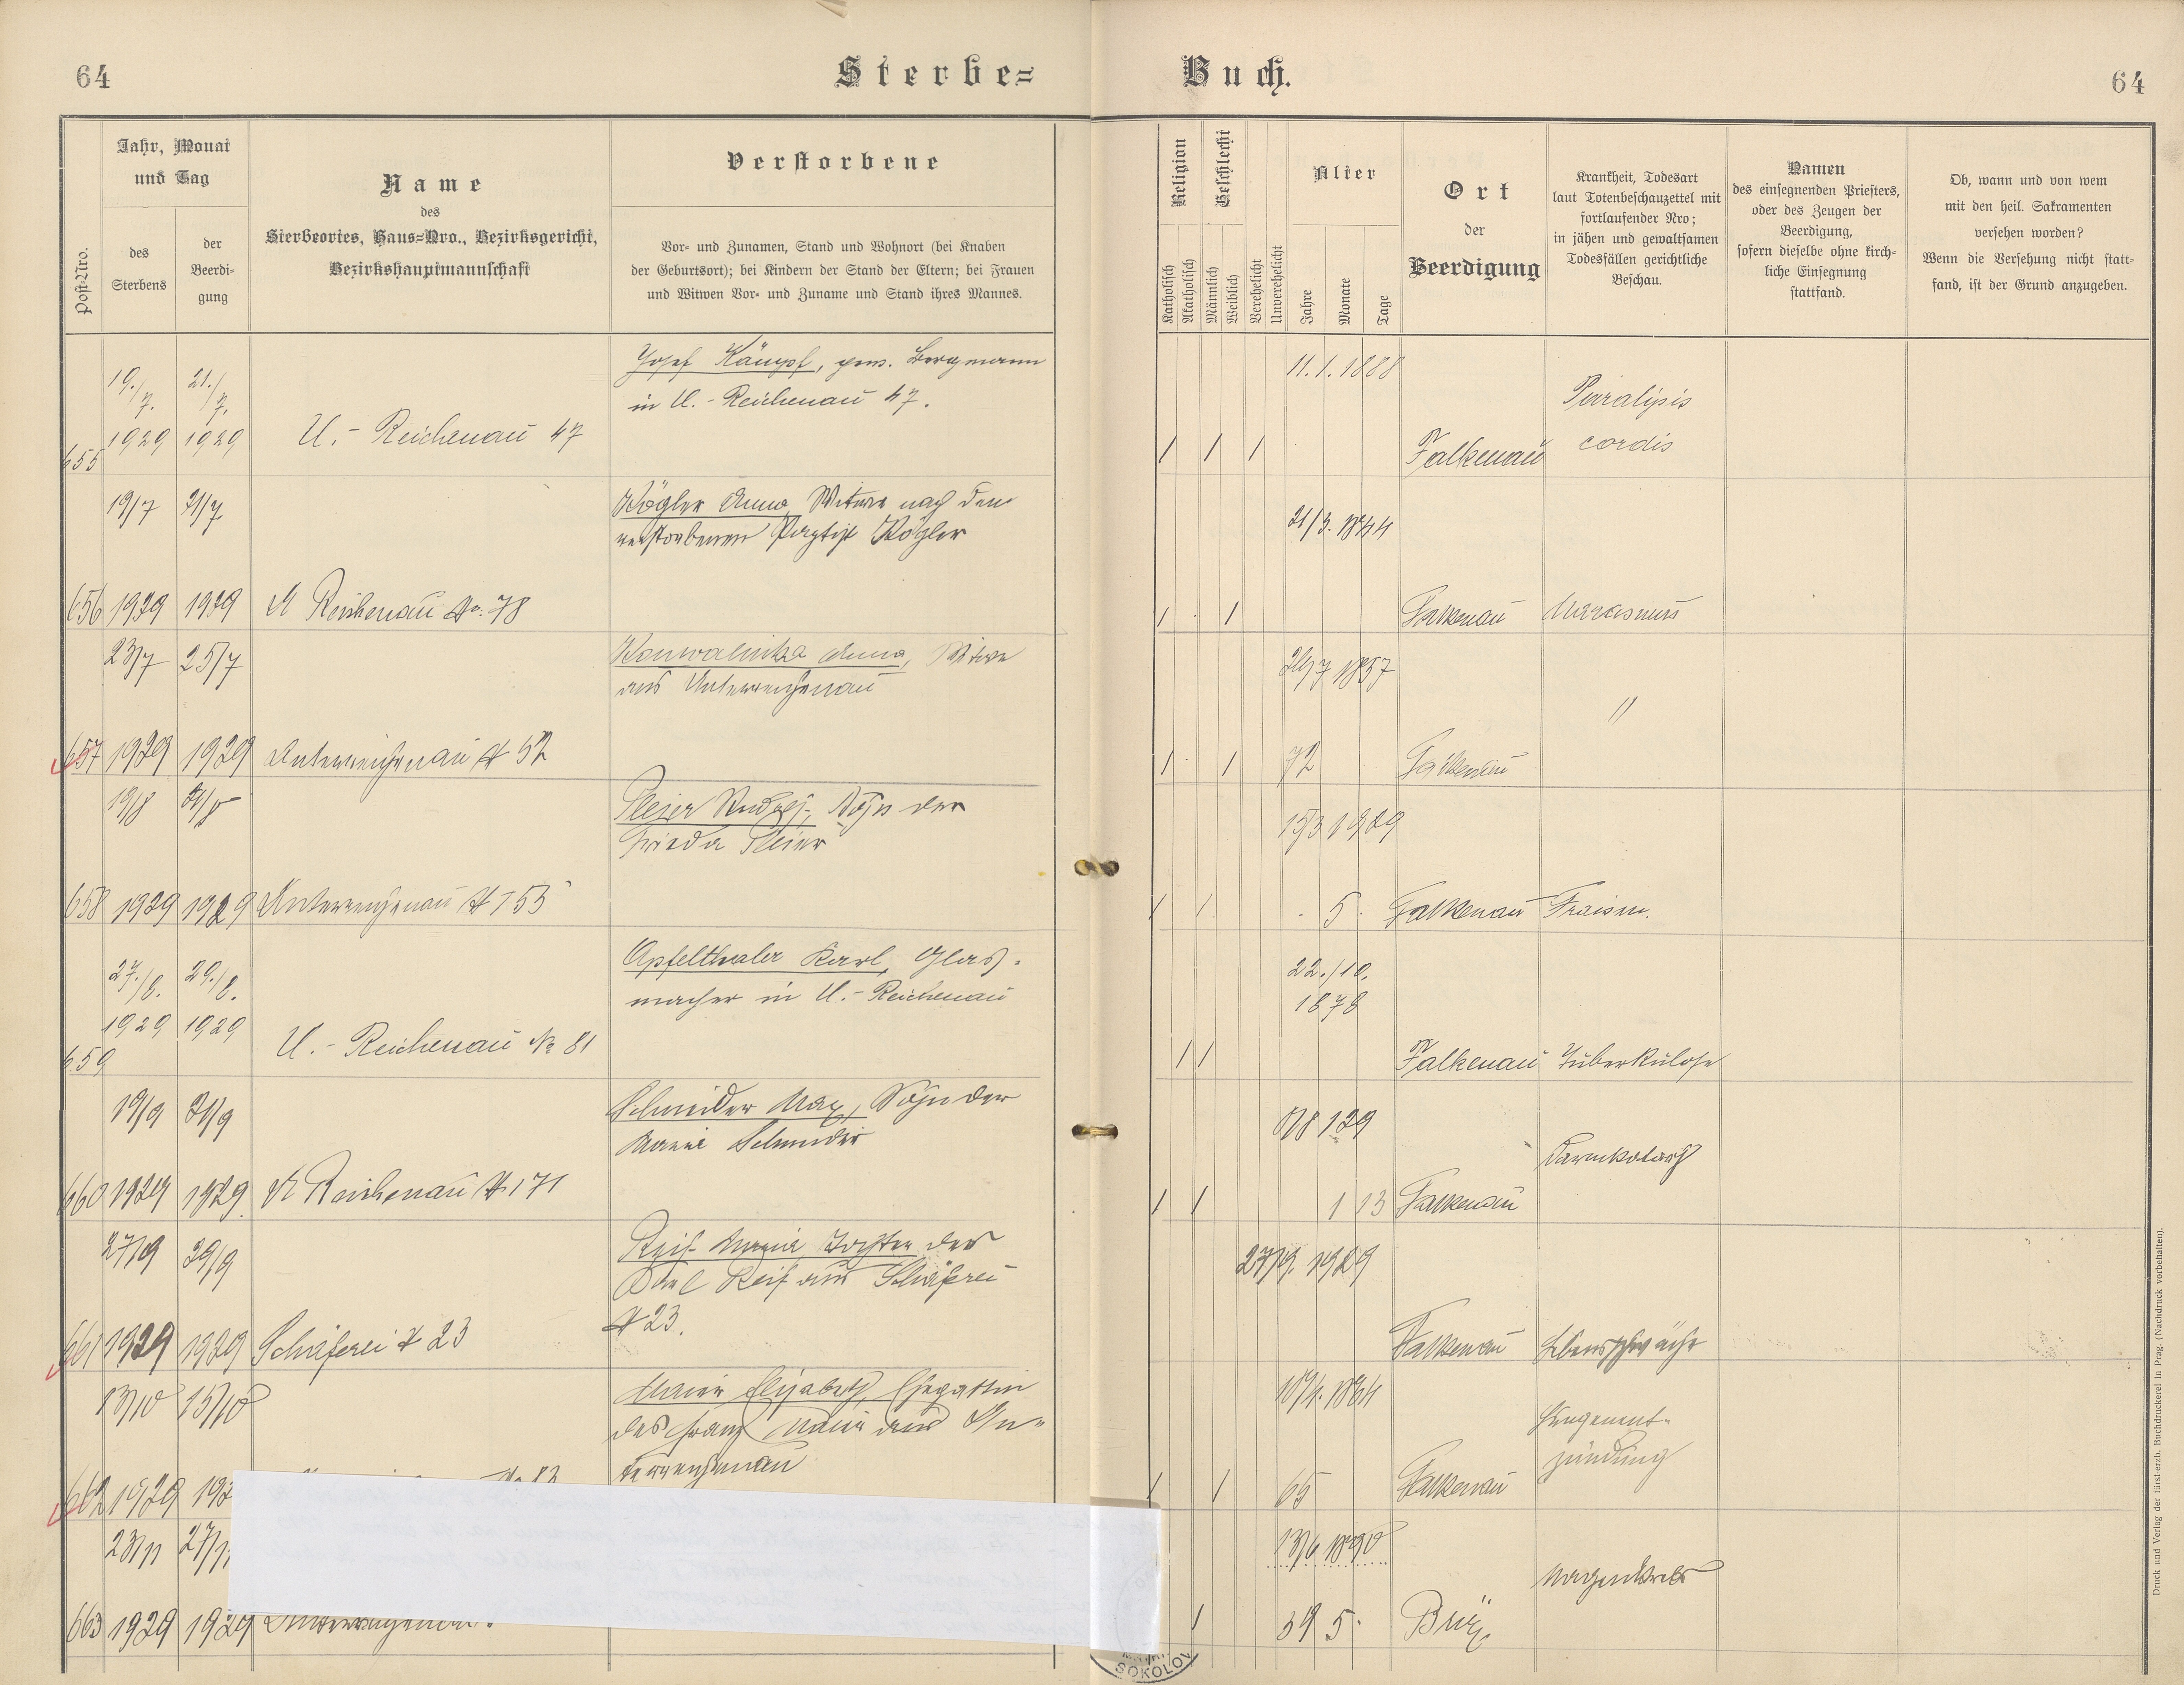 64
Sterbe=
Buch.
64
Post-Nro.
Jahr, Monat
und Tag
des
Sterbens
der
Beerdi-
gung
Name
des
Sterbeortes, Haus=Nro., Bezirksgericht,
Bezirkshauptmannschaft
Verstorbene
Vor- und Zunamen, Stand und Wohnort (bei Knaben
der Geburtsort); bei Kindern der Stand der Eltern; bei Frauen
und Witwen Vor- und Zuname und Stand ihres Mannes.
Religion
Katholisch
Akatholisch
Geschlecht
Männlich
Weiblich
Verehelicht
Unverehelicht
Alter
Jahre
Monate
Tage
Ort
der
Beerdigung
Krankheit, Todesart
laut Totenbeschauzettel mit
fortlaufender Nro;
in jähen und gewaltsamen
Todesfällen gerichtliche
Beschau.
Namen
des einsegnenden Priesters,
oder des Zeugen der
Beerdigung,
sofern dieselbe ohne kirch-
liche Einsegnung
stattfand.
Ob, wann und von wem
mit den heil. Sakramenten
versehen worden?
Wenn die Versehung nicht statt-
fand, ist der Grund anzugeben.
655
19./7. 1929
21./7. 1929
U.- Reichenau 47
Josef Kämpf, Bergmann
in U.- Reichenau 47.
1 1 1
11. 1. 1888
Falkenau
Paralysis
cordis
656
19/7 1929
21/7 1929
U Reichenau No. 78
Kögler Anna, Witwe nach dem
verstorbenen Kögler
1 1
21/3. 1844
Falkenau
Marasmus
657
23/7 1929
25/7 1929
Unterreichenau # 52
Konwalinka Anna, Witwe
aus Unterreichenau
1 1
1857
72
Falkenau
"
658
19/8 1929
21/8 1929
Unterreichenau # 153
Pleier Rudolf, Sohn der
Frieda Pleier
1 1
15/3 1929
5
Falkenau
Fraisen.
659
27./8. 1929
29./8. 1929
U.- Reichenau № 81
Apfelthaler Karl, Glas-
macher in U.- Reichenau
1 1
22./10.
1878
Falkenau
Tuberkulose
660
19/9 1929
21/9 1929
U Reichenau # 171
Schneider Max, Sohn der
Marie Schneider
1 1
1 13
Falkenau
Darmkatarrh
661
27/9 1929
29/9 1929
Schäferei # 23
Reif Maria, Tochter des
Reif aus Schäferei
# 23.
27/9. 1929
Falkenau
Lebensschwäche
662
13/10 1929
15/10
Elisabeth, Ehegattin
des Franz aus Un-
terreichenau
1 1
1864
65
Falkenau
Lungenent-
zündung
663
23/11 1929
27/11 1929
1
13/6 1890
39 5
Brüx
Magenkrebs
SOKOLOV
Druck und Verlag der fürst-erzb. Buchdruckerei in Prag. (Nachdruck vorbehalten).